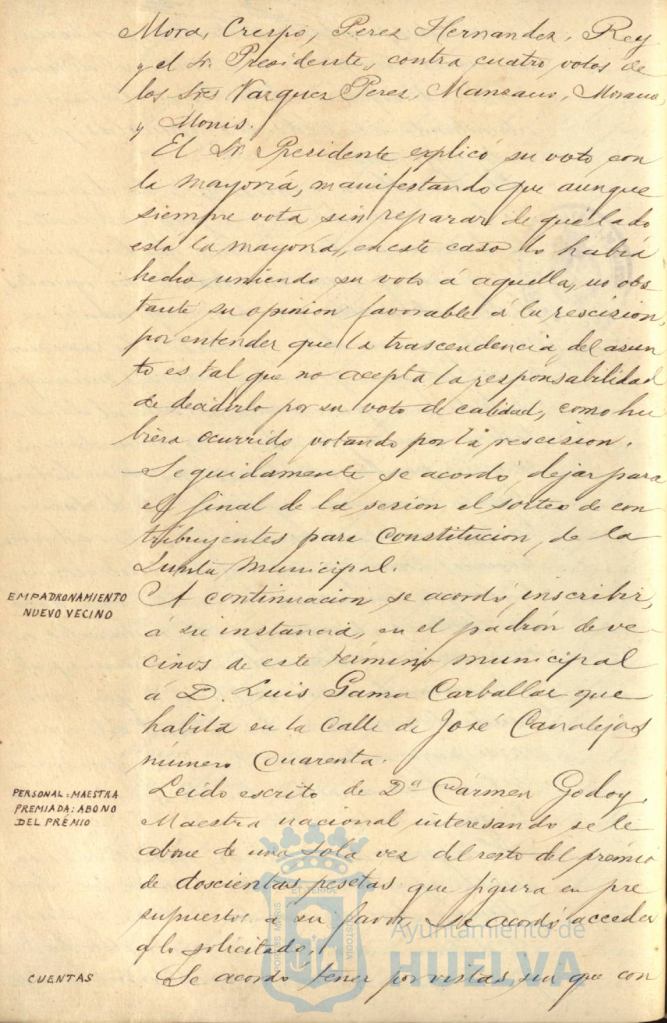 Mora, Crespo, Perez Hernandez, Rey
y el Sr. Presidente, contra cuatro votos de
los Sres Vazquez Perez, Manzano, Morano
y Monis.
El Sr. Presidente explicó su voto con
la mayoría, manifestando que aunque
siempre vota sin reparar de qué lado
está la mayoría, en este caso lo había
hecho uniendo su voto á aquella, no obs
tante su opinion favorable á la rescision,
por entender que la trascendencia del asun
to es tal que no acepta la responsabilidad
de decidirlo por su voto de calidad, como hu
biera ocurrido votando por la rescision.
Seguidamente se acordó dejar para
el final de la sesion el sorteo de con
tribuyentes para constitucion de la
Junta Municipal.
EMPADRONAMIENTO
NUEVO VECINO
A continuacion se acordó inscribir,
á su instancia, en el padrón de ve
cinos de este término municipal
á D. Luis Gama Carballar que
habita en la calle de José Canalejas
número cuarenta.
PERSONAL: MAESTRA
PREMIADA: ABONO
DEL PREMIO
Leido escrito de Dª Cármen Godoy,
Maestra nacional interesando se le
abone de una sola vez del resto del premio
de doscientas pesetas que figura en pre
supuestos a su favor, se acordó acceder
a lo solicitado.
CUENTAS
Se acordo tener por vistas, sin que con
Ayuntamiento de
HUELVA